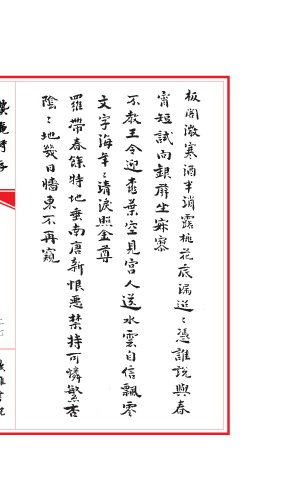 板閣微寒酒半消露桃花底漏迢：憑誰說與春
宵短試向銀屏坐寂寥
不教王令迎桃葉空見宮人送水雲自信飄零
文字海年：清淚照金尊
羅帶春餘特地垂南唐新恨悉禁持可憐繁杏
陰：地幾日牆東不再窺